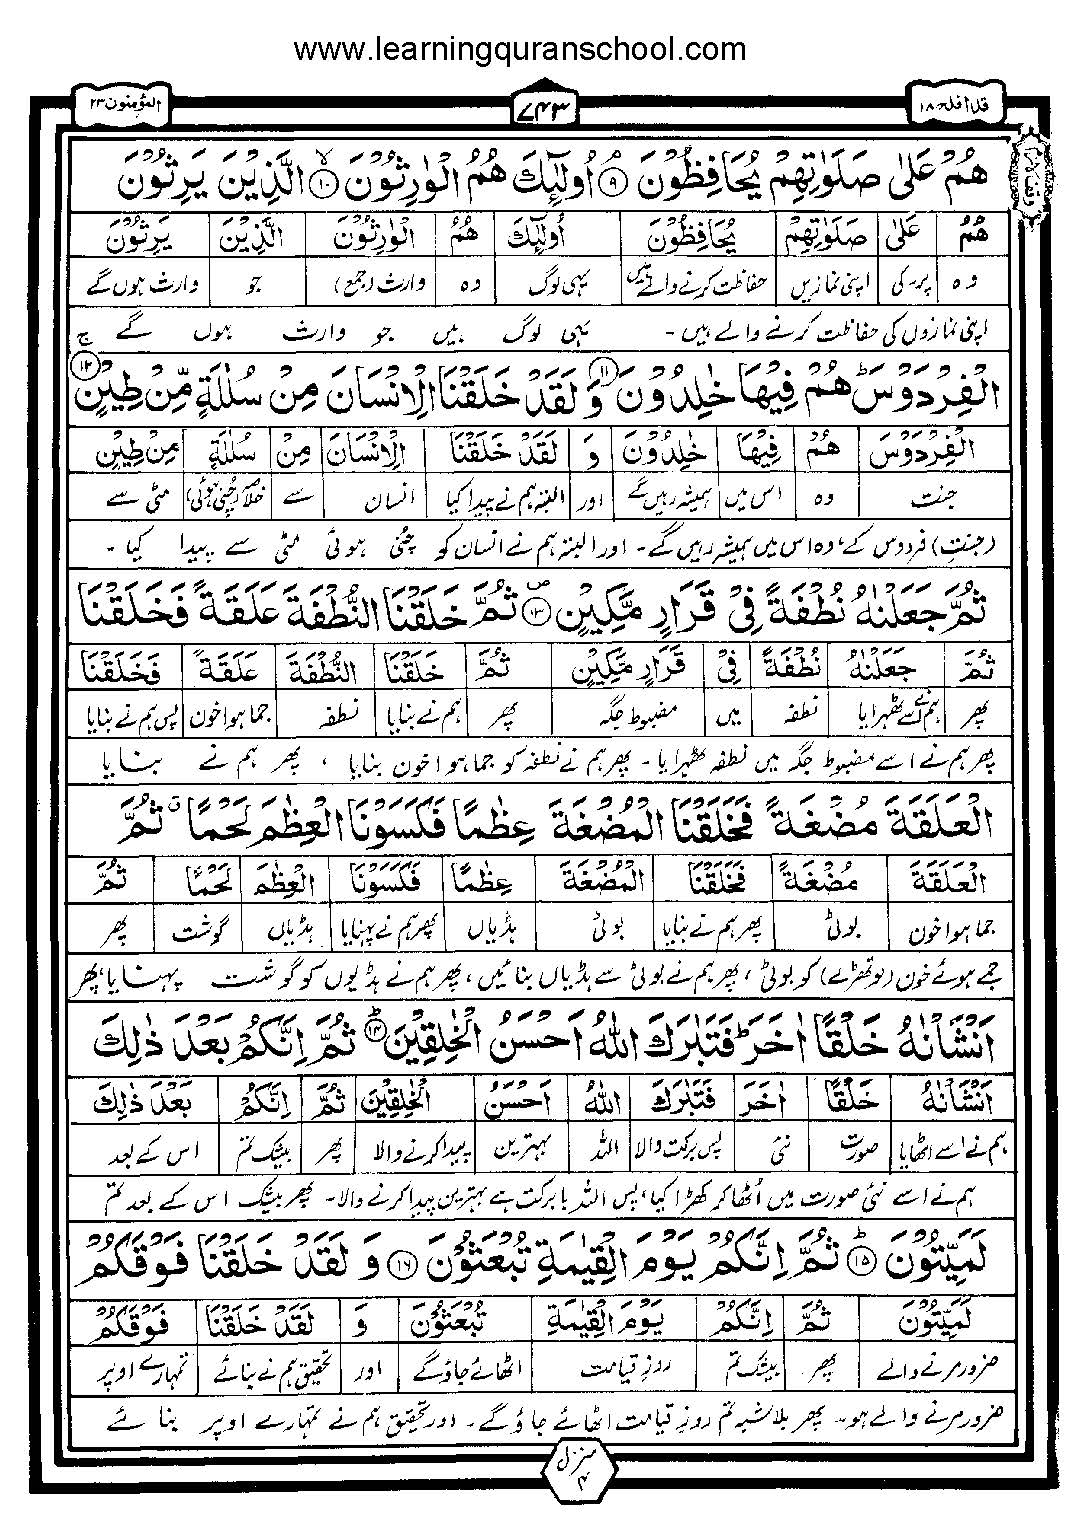 www.learningquranschool.com
قد افلح ۱۸
۷۴۳
المؤمنون ۲۳
هُمْ عَلٰی صَلَوٰتِهِمْ یُحَافِظُوْنَ ۹ اُولٰٓئِكَ هُمُ الْوٰرِثُوْنَ ۱۰ الَّذِیْنَ یَرِثُوْنَ
هُمْ عَلٰی صَلَوٰتِهِمْ یُحَافِظُوْنَ اُولٰٓئِكَ هُمُ الْوٰرِثُوْنَ الَّذِیْنَ یَرِثُوْنَ
وہ پر۔کی اپنی نمازیں حفاظت کرنے والے ہیں یہی لوگ وہ وارث (جمع) جو وارث ہوں گے
اپنی نمازوں کی حفاظت کرنے والے ہیں۔ یہی لوگ ہیں جو وارث ہوں گے
الْفِرْدَوْسَ ؕ هُمْ فِیْهَا خٰلِدُوْنَ ۱۱ وَ لَقَدْ خَلَقْنَا الْاِنْسَانَ مِنْ سُلٰلَةٍ مِّنْ طِیْنٍ ۱۲
الْفِرْدَوْسَ هُمْ فِیْهَا خٰلِدُوْنَ وَ لَقَدْ خَلَقْنَا الْاِنْسَانَ مِنْ سُلٰلَةٍ مِنْ طِیْنٍ
جنت وہ اس میں ہمیشہ رہیں گے اور البتہ ہم نے پیدا کیا انسان سے خلاصہ (چنی ہوئی) مٹی سے
(جنت) فردوس کے، وہ اس میں ہمیشہ رہیں گے۔ اور البتہ ہم نے انسان کو چنی ہوئی مٹی سے پیدا کیا۔
ثُمَّ جَعَلْنٰهُ نُطْفَةً فِیْ قَرَارٍ مَّكِیْنٍ ۱۳ ثُمَّ خَلَقْنَا النُّطْفَةَ عَلَقَةً فَخَلَقْنَا
ثُمَّ جَعَلْنٰهُ نُطْفَةً فِیْ قَرَارٍ مَّكِیْنٍ ثُمَّ خَلَقْنَا النُّطْفَةَ عَلَقَةً فَخَلَقْنَا
پھر ہم نے اسے ٹھہرایا نطفہ میں مضبوط جگہ پھر ہم نے بنایا نطفہ جما ہوا خون پس ہم نے بنایا
پھر ہم نے اسے مضبوط جگہ میں نطفہ ٹھہرایا۔ پھر ہم نے نطفہ کو جما ہوا خون بنایا، پھر ہم نے بنایا
الْعَلَقَةَ مُضْغَةً فَخَلَقْنَا الْمُضْغَةَ عِظٰمًا فَكَسَوْنَا الْعِظٰمَ لَحْمًا ۗ ثُمَّ
الْعَلَقَةَ مُضْغَةً فَخَلَقْنَا الْمُضْغَةَ عِظٰمًا فَكَسَوْنَا الْعِظٰمَ لَحْمًا ثُمَّ
جما ہوا خون بوٹی پھر ہم نے بنایا بوٹی ہڈیاں پھر ہم نے پہنایا ہڈیاں گوشت پھر
جمے ہوئے خون (لوتھڑے) کو بوٹی، پھر ہم نے بوٹی سے ہڈیاں بنائیں، پھر ہم نے ہڈیوں کو گوشت پہنایا، پھر
اَنْشَاْنٰهُ خَلْقًا اٰخَرَ ؕ فَتَبٰرَكَ اللّٰهُ اَحْسَنُ الْخٰلِقِیْنَ ۱۴ ثُمَّ اِنَّكُمْ بَعْدَ ذٰلِكَ
اَنْشَاْنٰهُ خَلْقًا اٰخَرَ فَتَبٰرَكَ اللّٰهُ اَحْسَنُ الْخٰلِقِیْنَ ثُمَّ اِنَّكُمْ بَعْدَ ذٰلِكَ
ہم نے اسے اٹھایا صورت نئی پس برکت والا اللہ بہترین پیدا کرنے والا پھر بیشک تم اس کے بعد
ہم نے اسے نئی صورت میں اُٹھا کر کھڑا کیا، پس اللہ بابرکت ہے بہترین پیدا کرنے والا۔ پھر بیشک اس کے بعد تم
لَمَیِّتُوْنَ ۱۵ ثُمَّ اِنَّكُمْ یَوْمَ الْقِیٰمَةِ تُبْعَثُوْنَ ۱۶ وَ لَقَدْ خَلَقْنَا فَوْقَكُمْ
لَمَیِّتُوْنَ ثُمَّ اِنَّكُمْ یَوْمَ الْقِیٰمَةِ تُبْعَثُوْنَ وَ لَقَدْ خَلَقْنَا فَوْقَكُمْ
ضرور مرنے والے پھر بیشک تم روزِ قیامت اٹھائے جاؤگے اور تحقیق ہم نے بنائے تمہارے اوپر
ضرور مرنے والے ہو۔ پھر بلاشبہ تم روزِ قیامت اٹھائے جاؤ گے۔ اور تحقیق ہم نے تمہارے اوپر بنائے
منزل ۴